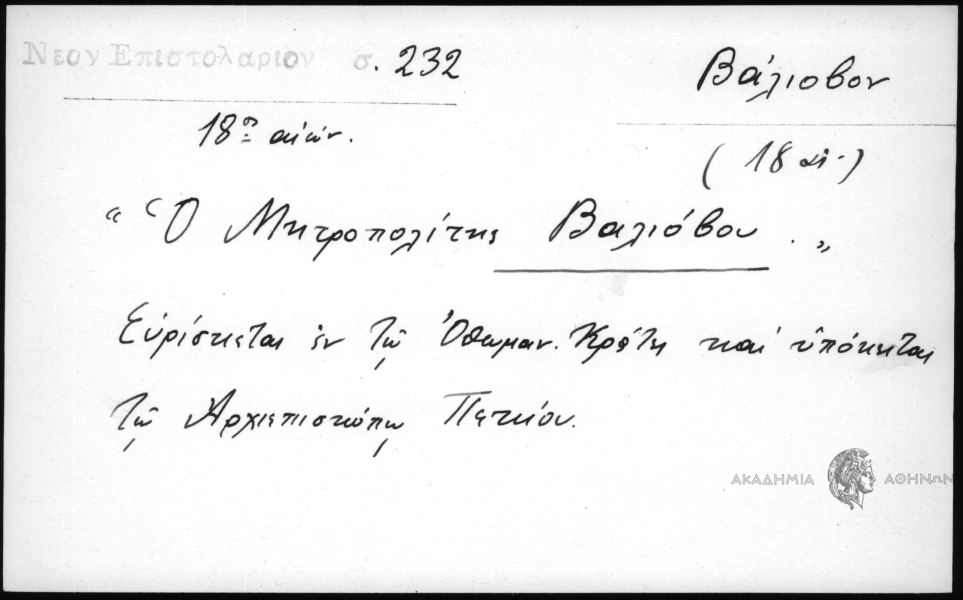 Νεον Επιστολαριον σ. 232
Βάλιοβον
18ος αἰών.
(18 αἰ.)
“Ὁ Μητροπολίτης Βαλιόβου.„
Εὑρίσκεται ἐν τῷ Ὀθωμαν. Κράτει καὶ ὑπόκειται
τῷ Ἀρχιεπισκόπῳ Πεκίου.
ΑΚΑΔΗΜΙΑ ΑΘΗΝΩΝ